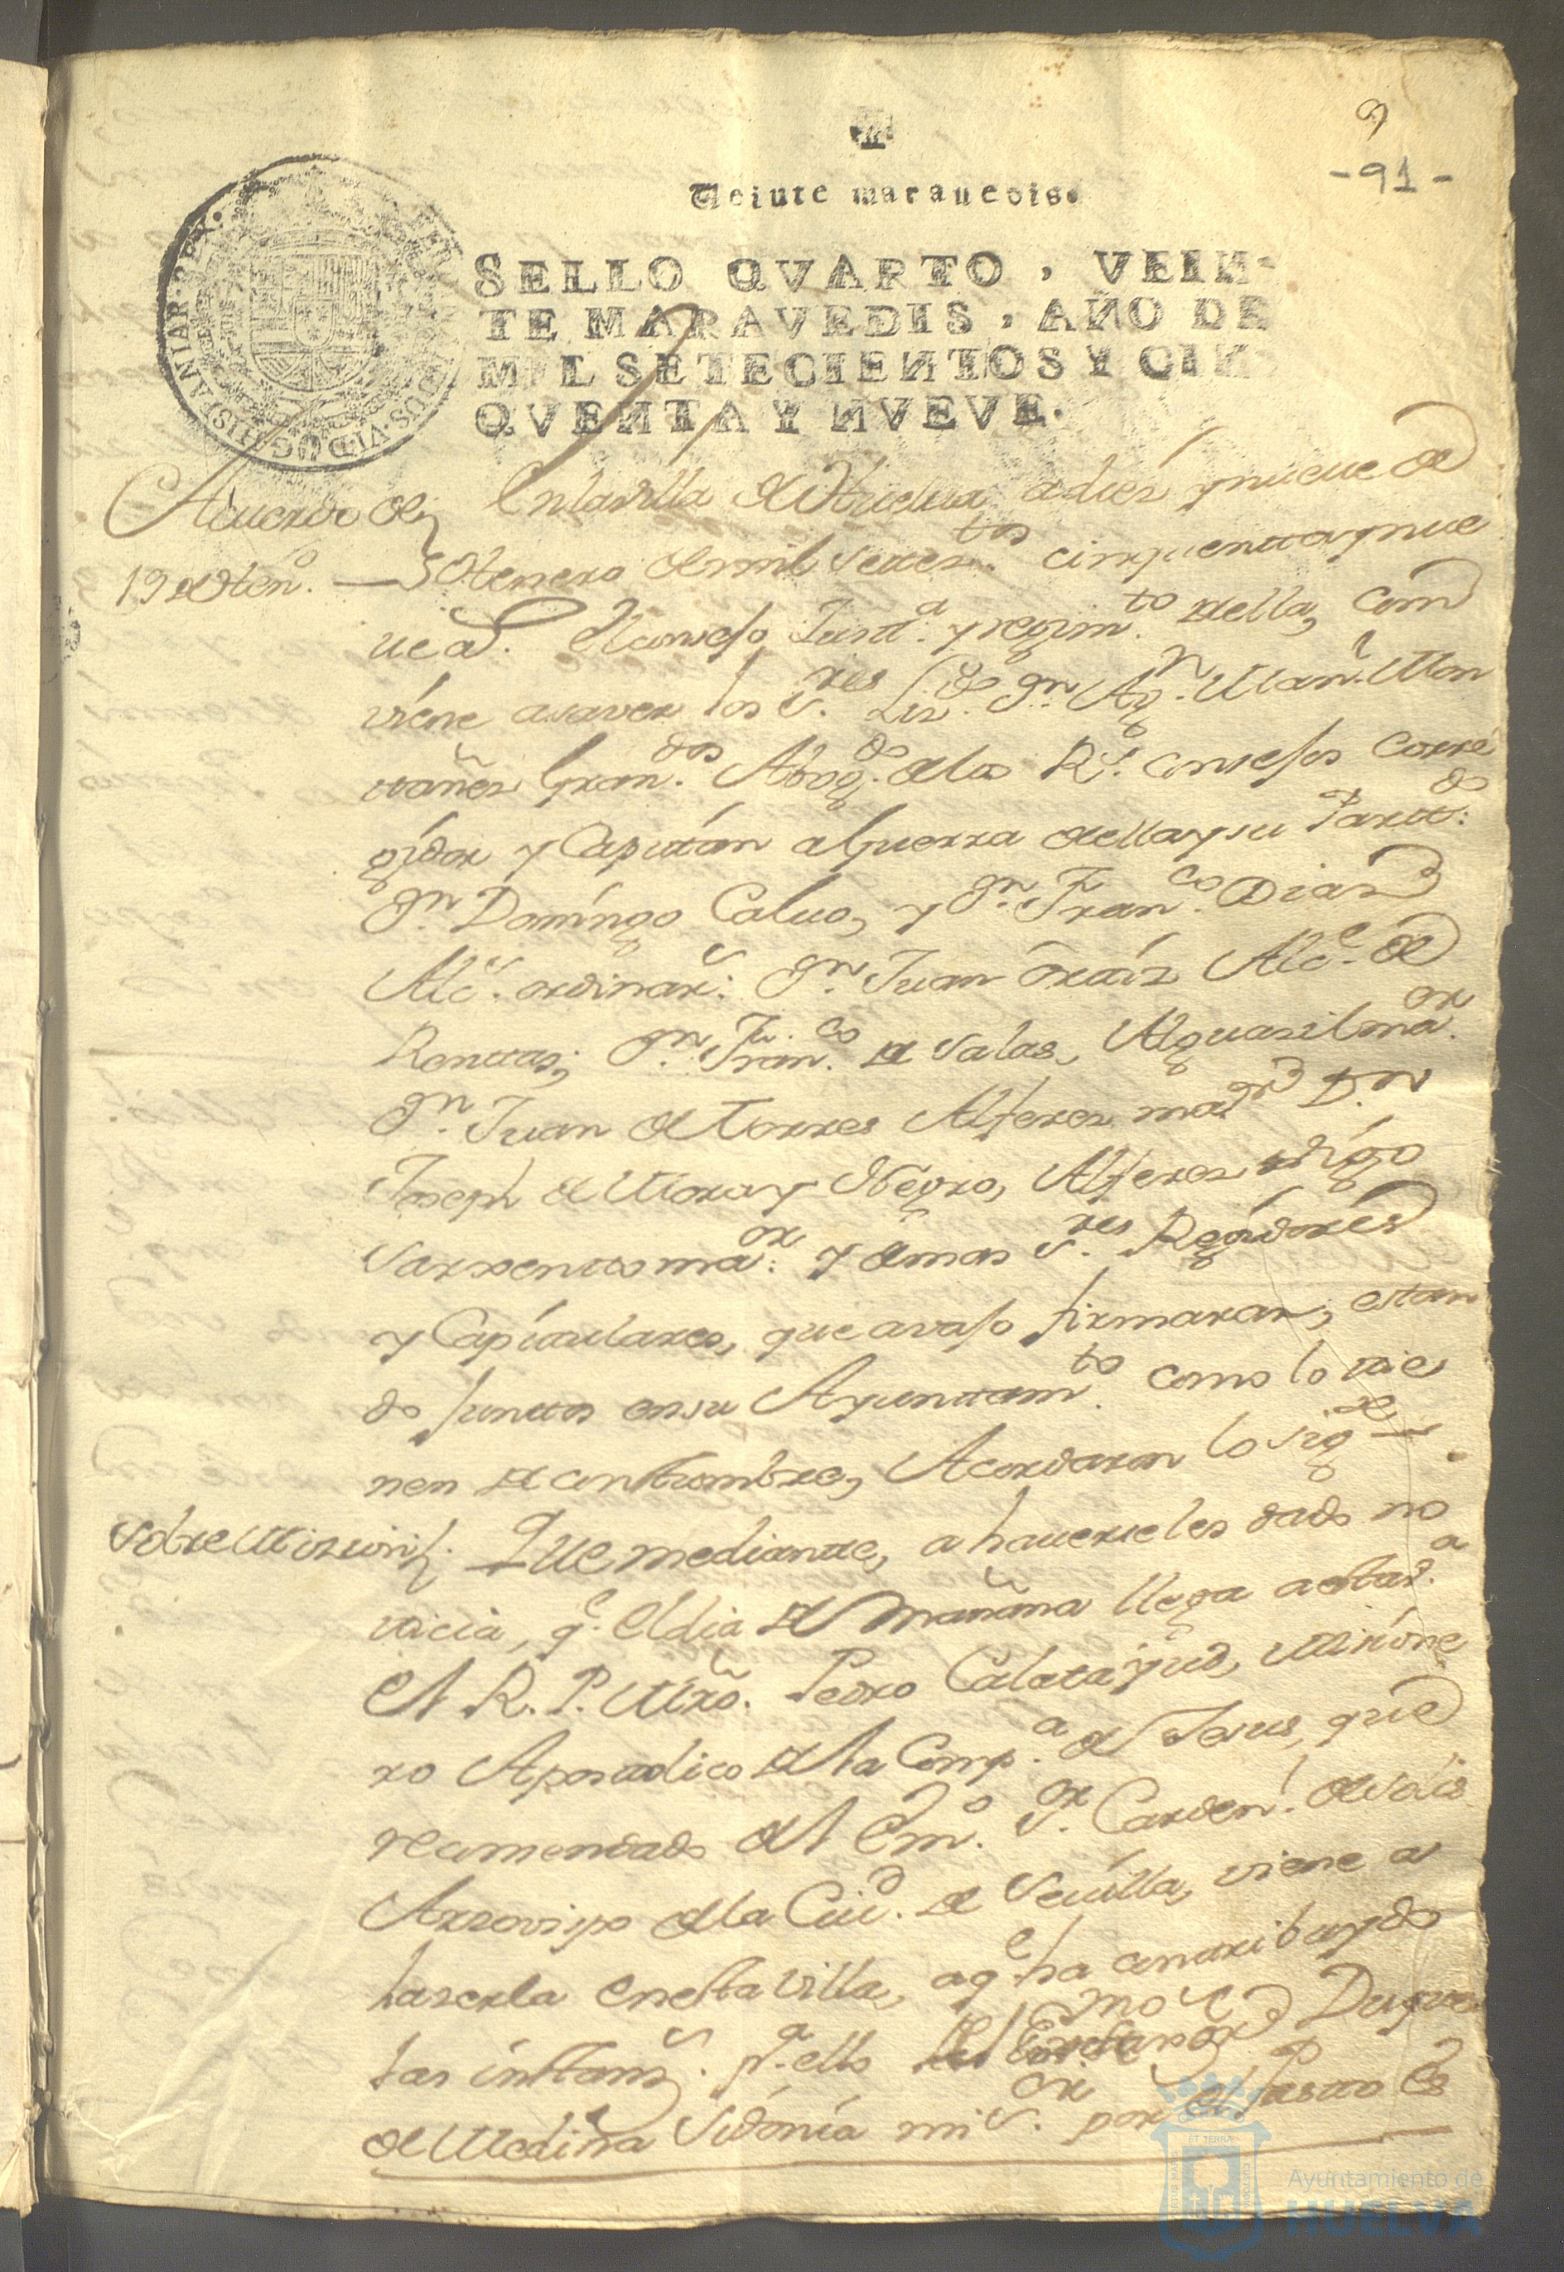 9
-91-
Veinte maravedis.
SELLO QVARTO, VEIN-
TE MARAVEDIS, AÑO DE
MIL SETECIENTOS Y CIN-
QVENTA Y NVEVE.
Acuerdo de En la villa de Huelva a diez y nueve de
19 de Hen.º Henero de mill setez.tos cinquenta y nue
ve a.s El consejo Just.a y regim.to della, com
viene a saver los S.res Liz.do Dn. Ag.n Man.l Mon
tañez Abog.do de los R.s consejos Corre
gidor y Capitán a guerra della y su Partt.do
Dn. Domingo Calvo, y Dn. Fran.co Diaz
Alc.s ordinar.s Dn. Juan Ortíz Alc.e de
Renttas; Dn. Fran.co de Salas, Alguazil ma.or
Dn. Juan de Torres Alferez ma.or D.n
Joseph de Mora y Negro, Alferez digo
Sarxento ma.or y demas S.res Regidores
y Capitulares, que avajo firmaran, estan
do junttos en su Ayunttam.to como lo tie
nen de costtumbre, Acordaron lo sig.te
Sobre Mision Que mediante, a haverseles dado no
ticia, q.e el dia de mañana llega a esta v.a
el R. P. Mro. Pedro Calatayud, Misione
ro Apostolico de la Comp.a de Jesus, que
recomendado del Em.o S.or Carden.l de Solis
Arzovispo de la Ciu.d de Sevilla, viene a
hazerla en esta villa, a q.e ha contribuydo
las instanz.s p.a ello el Ex.mo S.or Duque
de Medina Sidonia mi S.or por el Justo
ET TERRA
Ayuntamiento de
HUELVA